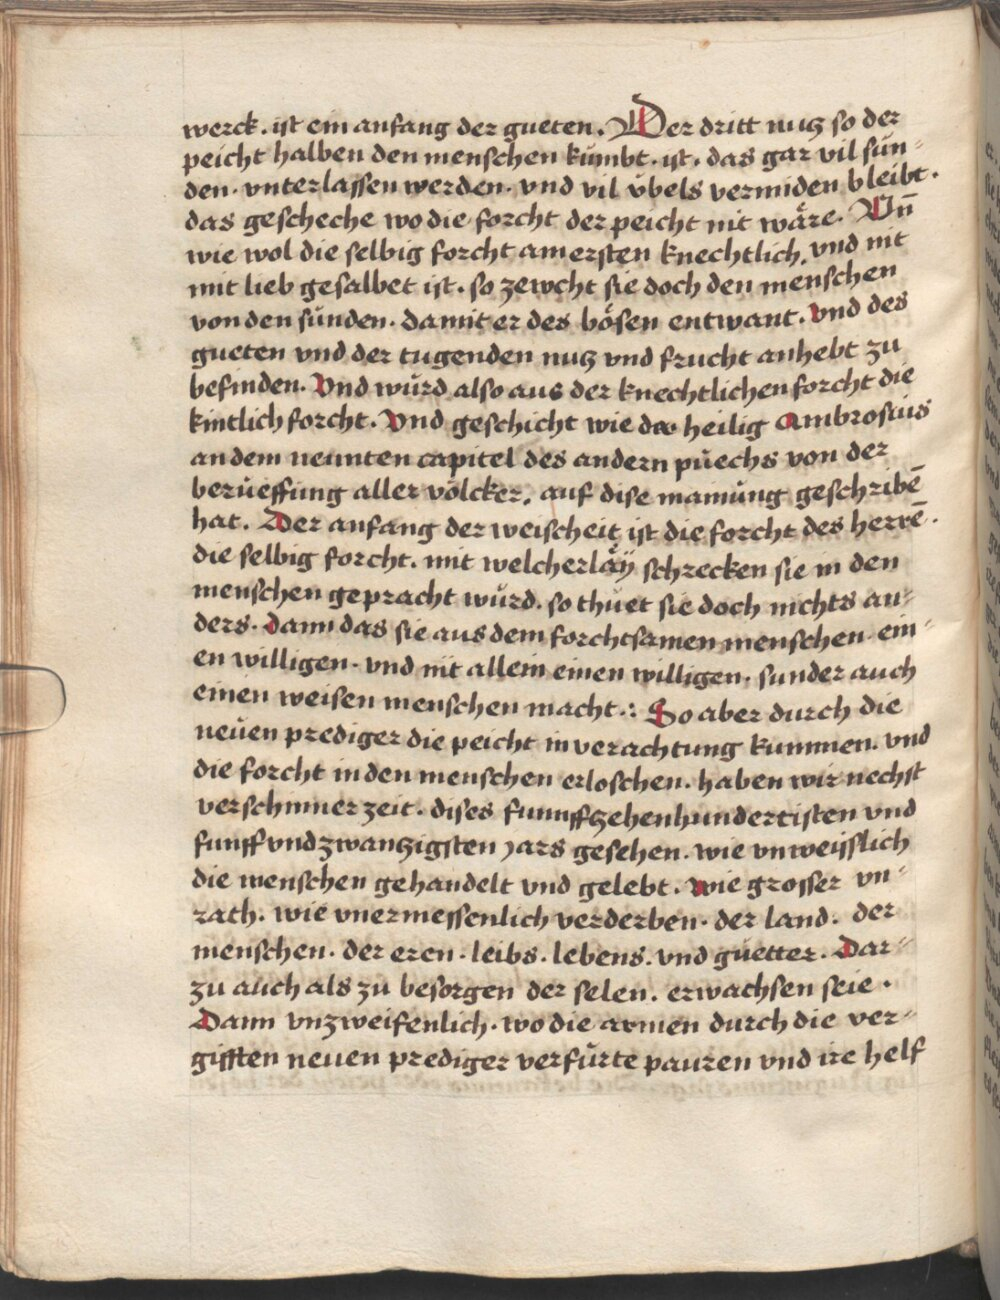 werck. ist ein anfang der gueten. Der dritt nutz so der
peicht halben den menschen kumbt. ist. das gar vil sün-
den. vnterlassen werden. vnd vil übels vermiden bleibt.
das gescheche wo die forcht der peicht nit wäre. Vñ
wie wol die selbig forcht am ersten knechtlich. vnd nit
mit lieb gesalbet ist. so zewcht sie doch den menschen
von den sünden. damit er des bösen entwant. vnd des
gueten vnd der tugenden nutz vnd frucht anhebt zu
befinden. Vnd würd also aus der knechtlichen forcht die
kintlich forcht. Vnd geschicht wie der heilig Ambrosius
an dem neunten capitel des andern püechs von der
berüeffung aller völcker. auf dise mainung geschribē
hat. Der anfang der weischeit ist die forcht des herrē.
die selbig forcht. mit welcherläy schrecken sie in den
menschen gepracht würd. so thüet sie doch nichts an-
ders. dann das sie aus dem forchtsamen menschen ein-
en willigen. vnd nit allein einen willigen. sunder auch
einen weisen menschen macht.: So aber durch die
neüen prediger die peicht in verachtung kummen. vnd
die forcht in den menschen erloschen. haben wir nechst
verschinner zeit. dises funnffzehenhundertisten vnd
funff vnd zwanzigsten jars gesehen. wie vnweisslich
die menschen gehandelt vnd gelebt. wie grosser vn-
rath. wie vnermessenlich verderben. der land. der
menschen. der eren. leibs. lebens. vnd güetter. Dar-
zu auch als zu besorgen der selen. erwachsen seie.
Dann vnzweifenlich. wo die armen durch die ver-
gifften neuen prediger verfürte pauren vnd ire helf